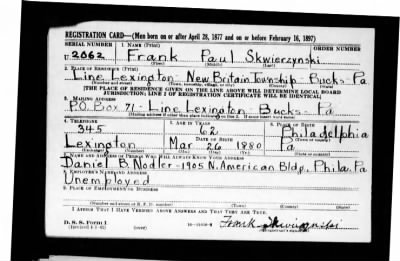 REGISTRATION CARD—(Men born on or after April 28, 1877 and on or before February 16, 1897)
SERIAL NUMBER 1. NAME (Print) ORDER NUMBER
U 2062 Frank Paul Skwierzynski
(First) (Middle) (Last)
2. PLACE OF RESIDENCE (Print)
Line Lexington New Britain Township Bucks Pa
(Number and street) (Town, township, village, or city) (County) (State)
[THE PLACE OF RESIDENCE GIVEN ON THE LINE ABOVE WILL DETERMINE LOCAL BOARD
JURISDICTION; LINE 2 OF REGISTRATION CERTIFICATE WILL BE IDENTICAL]
3. MAILING ADDRESS
P.O. Box 71 - Line Lexington Bucks - Pa
[Mailing address if other than place indicated on line 2. If same insert word same]
4. TELEPHONE 5. AGE IN YEARS 6. PLACE OF BIRTH
345 62 Philadelphia
DATE OF BIRTH (Town or county)
Lexington Mar - 26 1880 Pa
(Exchange) (Number) (Mo.) (Day) (Yr.) (State or country)
7. NAME AND ADDRESS OF PERSON WHO WILL ALWAYS KNOW YOUR ADDRESS
Daniel B. Nodler - 1905 N. American Bldg, Phila. Pa
8. EMPLOYER'S NAME AND ADDRESS
Unemployed
9. PLACE OF EMPLOYMENT OR BUSINESS
(Number and street or R. F. D. number) (Town) (County) (State)
I AFFIRM THAT I HAVE VERIFIED ABOVE ANSWERS AND THAT THEY ARE TRUE.
D. S. S. Form 1
(over) Frank Skwierzynski